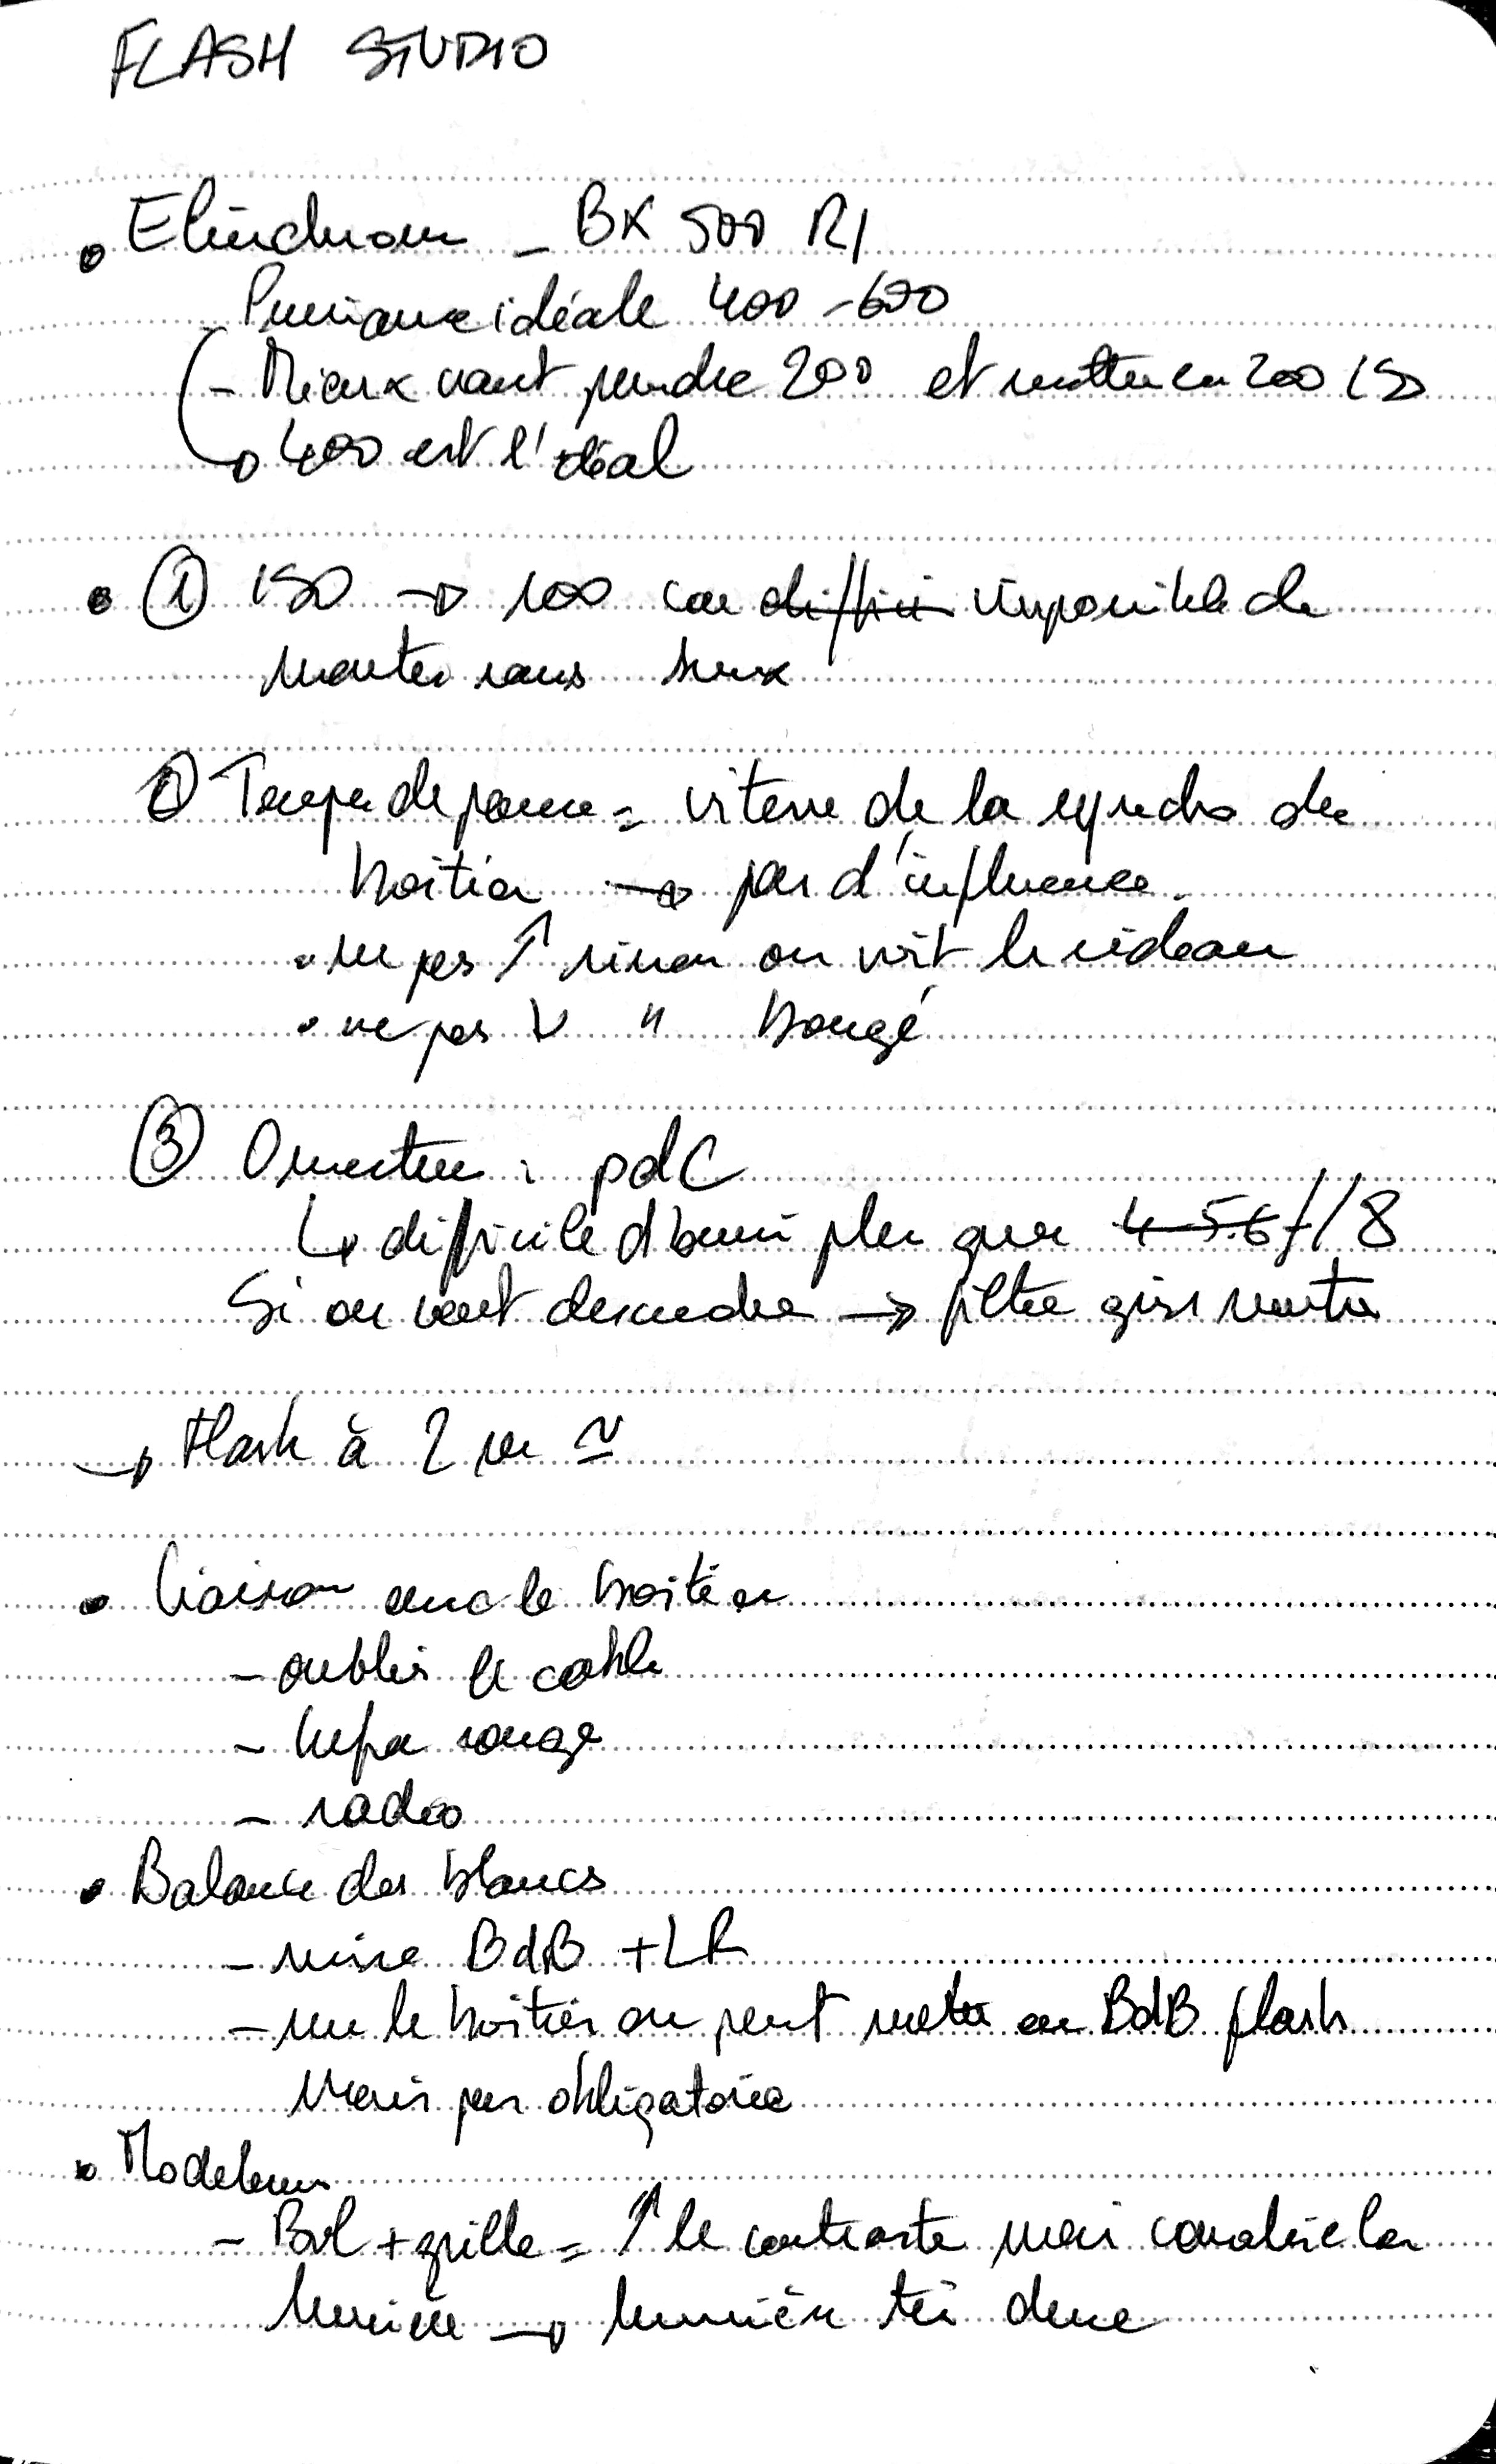 FLASH STUDIO
• Elinchrom - BX 500 RI
Puissance idéale 400 - 600
- Mieux vaut prendre 200 et mettre en 200 ISO
→ 400 est l'idéal
• ① ISO → 100 car diffici impossible de
monter sans
② Temps de pause = vitesse de la synchro du
boitier → pas d'influence.
• ne pas ↑ sinon on voit le rideau
• ne pas ↓ " bougé
③ Ouverture : pdC
↳ difficile d'ouvrir plus que 4-5.6 f/8
Si on veut descendre → filtre gris neutre
→ Flash à 2 m ≃
• Liaison avec le boitier
- oublier le cable
- Infra rouge
- radio
• Balance des blancs
- mire BdB + LR
- sur le boitier on peut mettre en BdB flash
Mais pas obligatoire
• Modeleurs
- Bol + grille = ↑ le contraste mais canalise la
lumière → lumière très dure